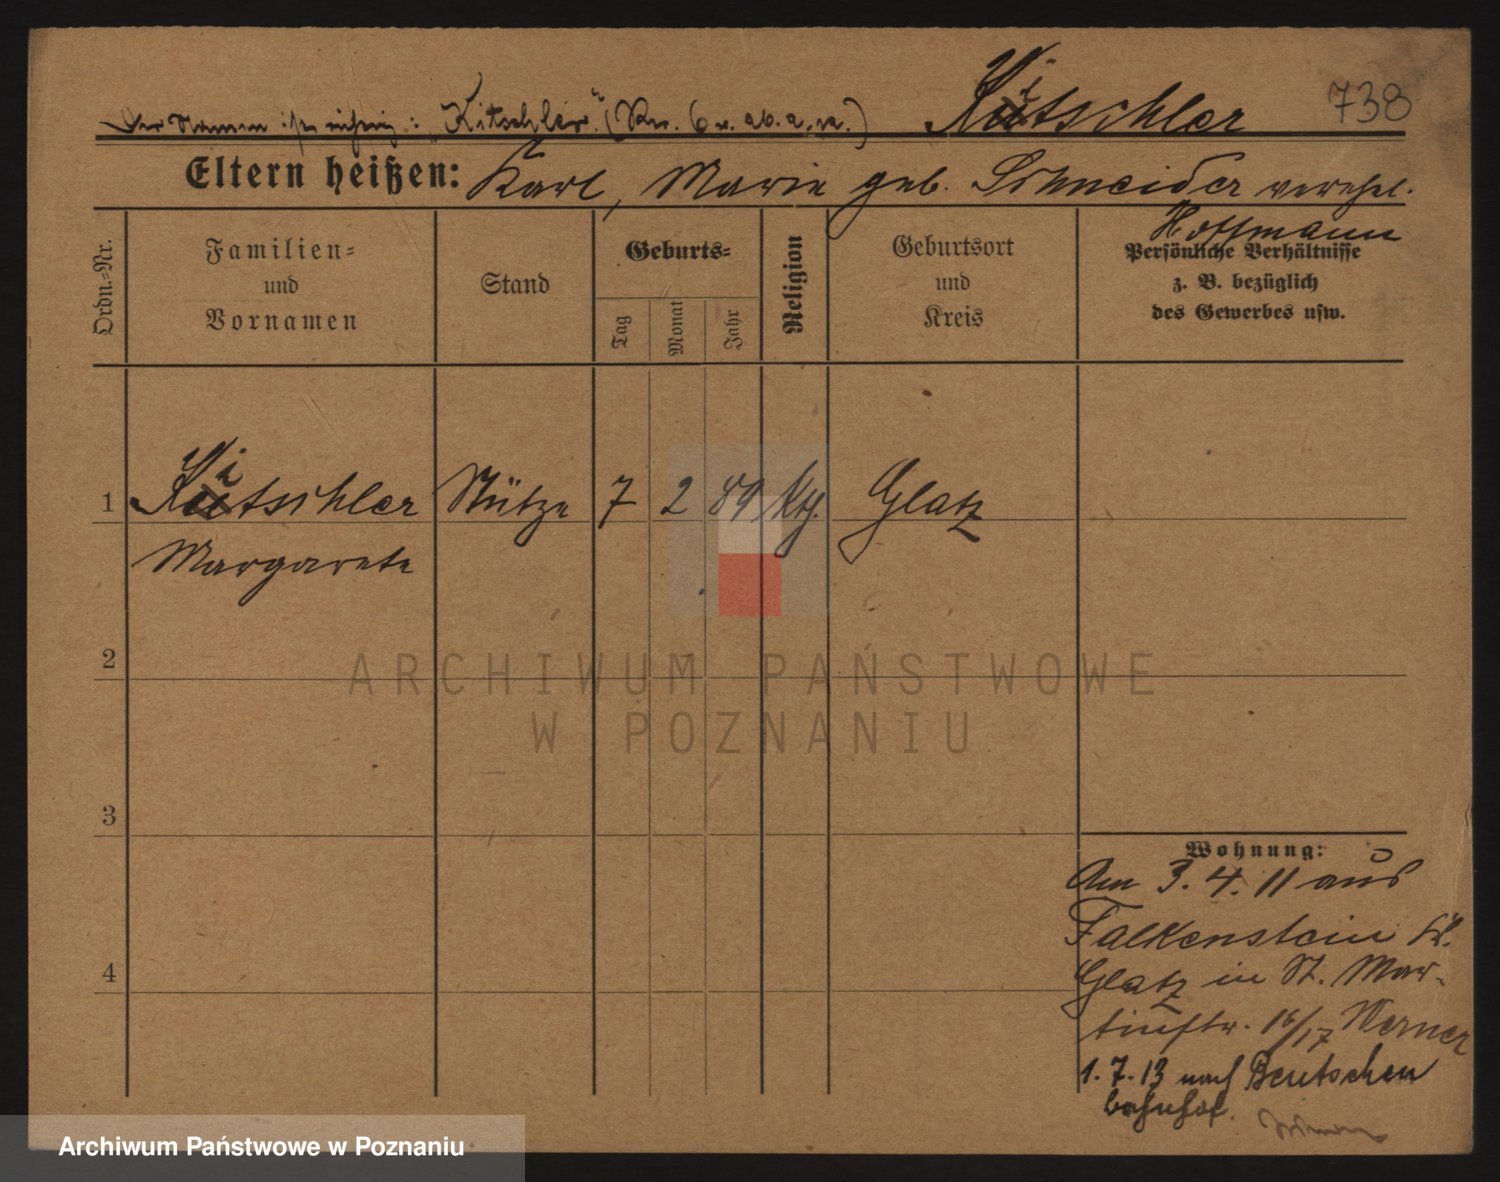 738
Der Namen ist richtig: „Kitschler“ (Kr. 6 u. ab. a. n.) Kitschler
Eltern heißen: Karl, Marie geb. Schneider verehel.
Hoffmann
Ordn.=Nr.
Familien=
und
Vornamen
Stand
Geburts=
Tag
Monat
Jahr
Religion
Geburtsort
und
Kreis
Persönliche Verhältnisse
z. B. bezüglich
des Gewerbes usw.
1 Kitschler Stütze 7 2 89 kth. Glatz
Margarete
2
3
4
Wohnung:
Am 3. 4. 11 aus
Falkenstein Kr.
Glatz in St. Mar-
tinstr. 16/17 Werner
1. 7. 13 nach Deutschen
bahnhof.
ARCHIWUM PAŃSTWOWE
W POZNANIU
Archiwum Państwowe w Poznaniu